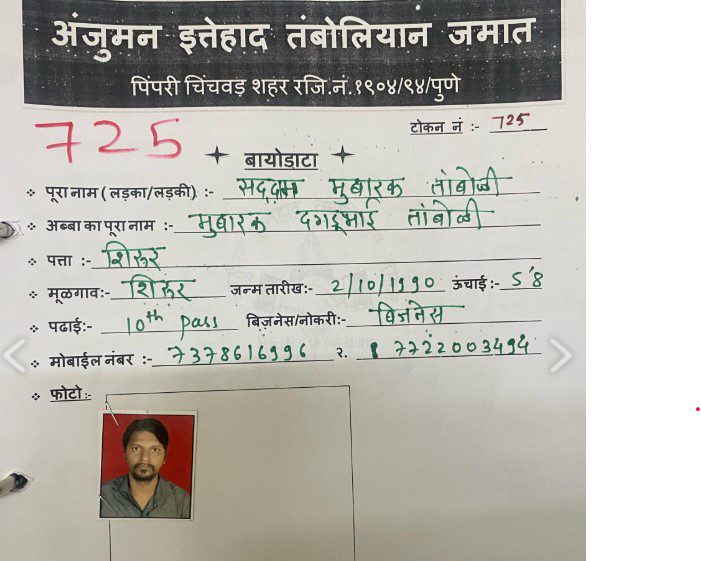 अंजुमन इत्तेहाद तंबोलियान जमात
पिंपरी चिंचवड़ शहर रजि.नं.१९०४/९४/पुणे
725
टोकन नं :- 725
बायोडाटा
पूरा नाम (लड़का/लड़की) :- सद्दाम मुबारक तांबोळी
अब्बा का पूरा नाम :- मुबारक दगडूभाई तांबोळी
पत्ता :- शिरूर
मूळगाव:- शिरूर जन्म तारीख:- 2/10/1990 ऊंचाई :- 5'8
पढाई:- 10th pass बिज़नेस/नोकरी:- बिजनेस
मोबाईल नंबर :- 7378616996 २. 7722003494
फोटो :-